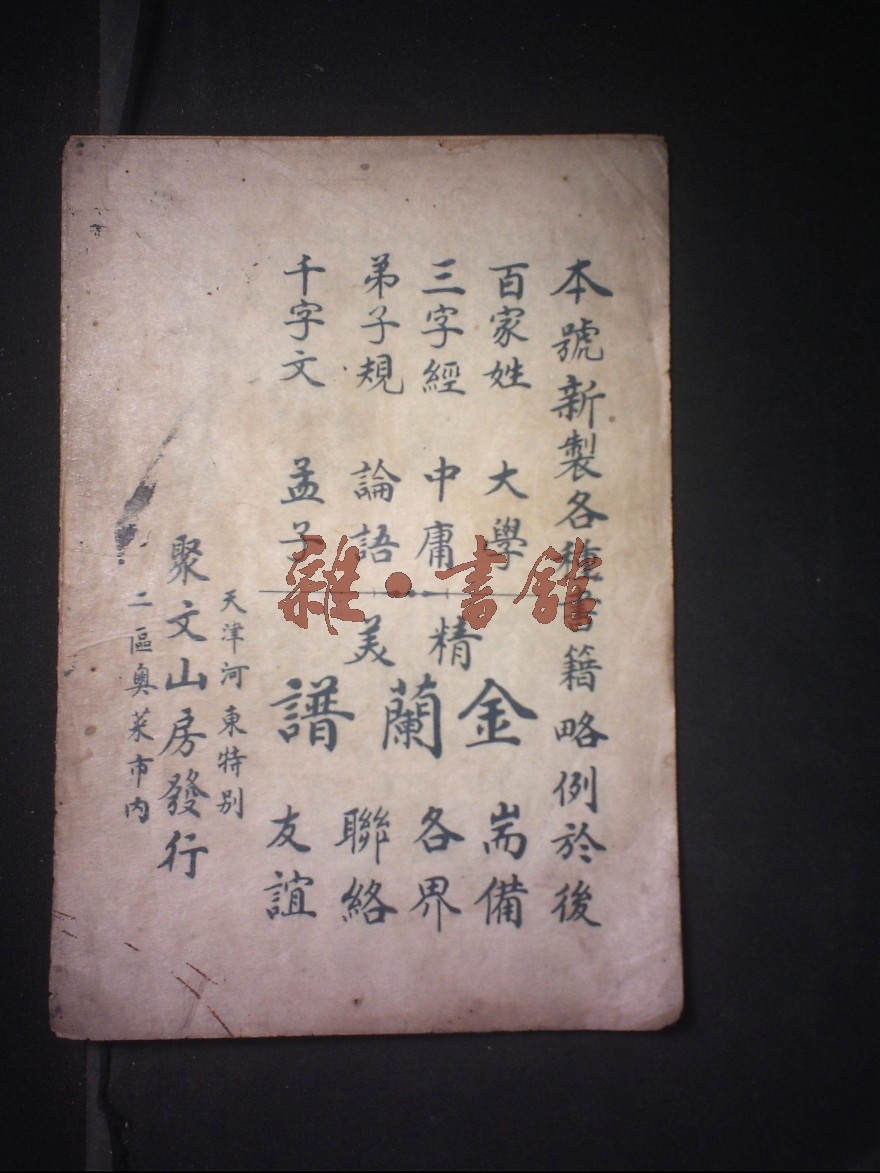 本號新製各種書籍略例於後
百家姓 大學
三字經 中庸
弟子規 論語
千字文 孟子
精美
金蘭譜
耑備
各界
聯絡
友誼
天津河東特別
二區奧菜市內
聚文山房發行
雜·書館